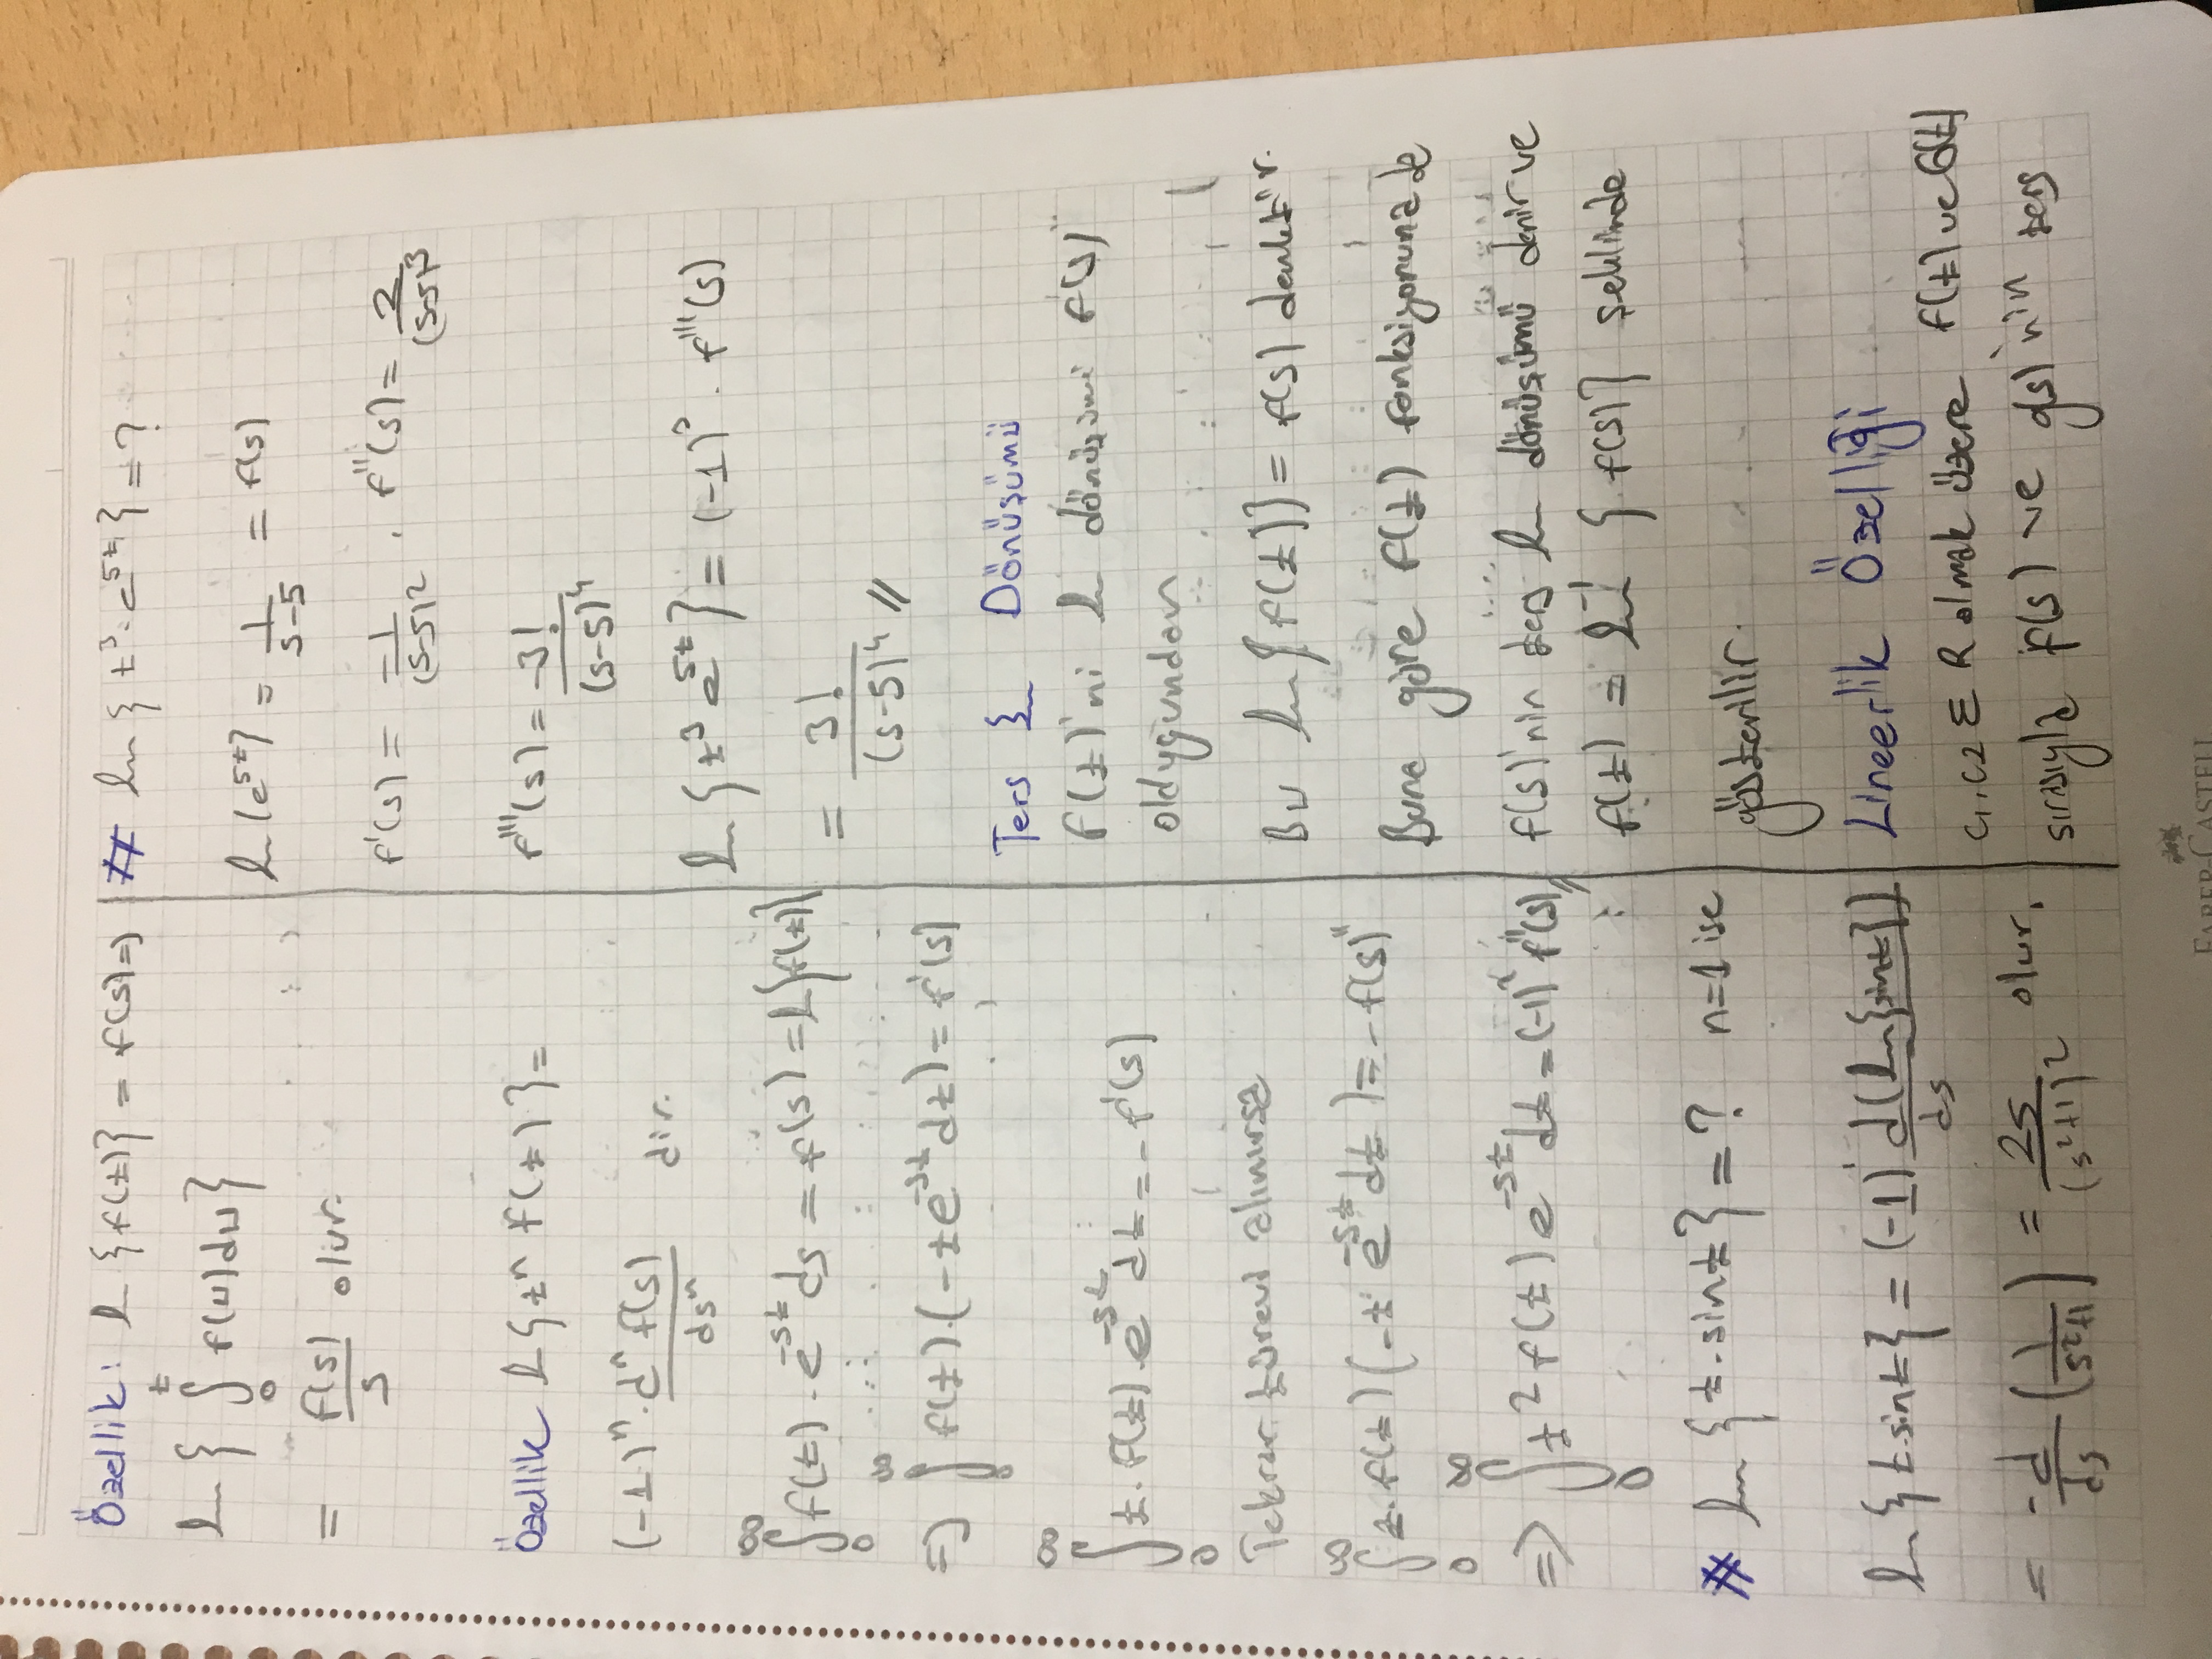 Özellik: L {f(t)} = f(s) ⇒
L { ∫₀ᵗ f(u)du }
= f(s)/s olur.
Özellik L{tⁿ f(t)} =
(-1)ⁿ. dⁿ f(s)/dsⁿ dir.
∫₀^∞ f(t).e^(-st) ds = f(s) = L{f(t)}
⇒ ∫₀^∞ f(t).(-te^(-st) dt) = f'(s)
∫₀^∞ t.f(t).e^(-st) dt = -f'(s)
Tekrar türevi alınırsa
∫₀^∞ t.f(t)(-t e^(-st) dt) = -f(s)''
⇒ ∫₀^∞ t² f(t) e^(-st) dt = (-1)² f''(s) //
# L {t.sint} = ? n=1 ise
L {t.sint} = (-1)¹ d(L{sint})/ds
= -d/ds (1/(s²+1)) = 2s/(s²+1)² olur.
# L { t³.e^(5t) } = ?
L {e^(5t)} = 1/(s-5) = f(s)
f'(s) = -1/(s-5)² . f''(s) = 2/(s-5)³
f'''(s) = -3!/(s-5)⁴
L {t³ e^(5t)} = (-1)³ . f'''(s)
= 3!/(s-5)⁴ //
Ters L Dönüşümü
f(t)'ni L dönüşümü f(s)
olduğundan
Bu L {f(t)} = f(s) denktir.
Buna göre f(t) fonksiyonuna de
f(s)'nin ters L dönüşümü denir ve
f(t) = L⁻¹ { f(s)} şeklinde
gösterilir.
Lineerlik Özelliği
c₁,c₂ ∈ R olmak üzere f(t) ve G(t)
sırasıyla f(s) ve g(s)'nin ters
FABER-CASTELL